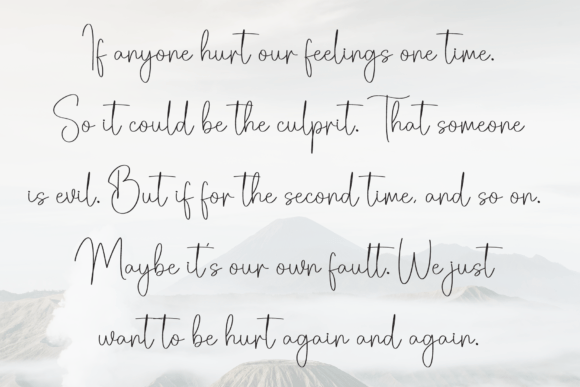 If anyone hurt our feelings one time.
So it could be the culprit. That someone
is evil. But if for the second time, and so on.
Maybe it's our own fault. We just
want to be hurt again and again.